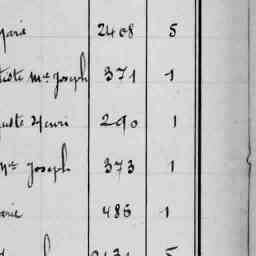 Marie 2408 5
tiste Mie Joseph 371 1
guste Henri 290 1
Mie Joseph 373 1
arie 486 1